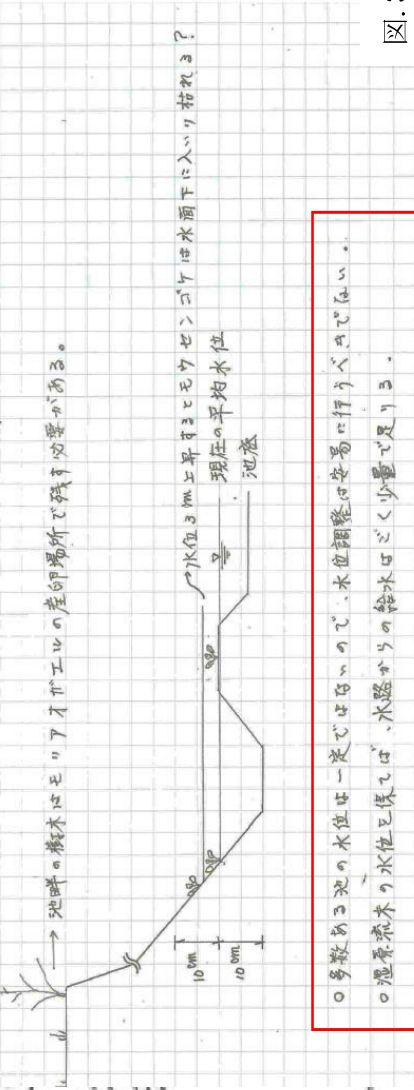 → 池畔の樹木はモリアオガエルの産卵場所で残す必要がある。
水位3cm上昇するとモウセンゴケは水面下に入いり枯れる?
現在の平均水位
池底
10cm
10cm
○多数ある池の水位は一定ではないので、水位調整は安易に行うべきでない。
○湿原流末の水位を保てば、水路からの給水はごく少量で足りる。
図.